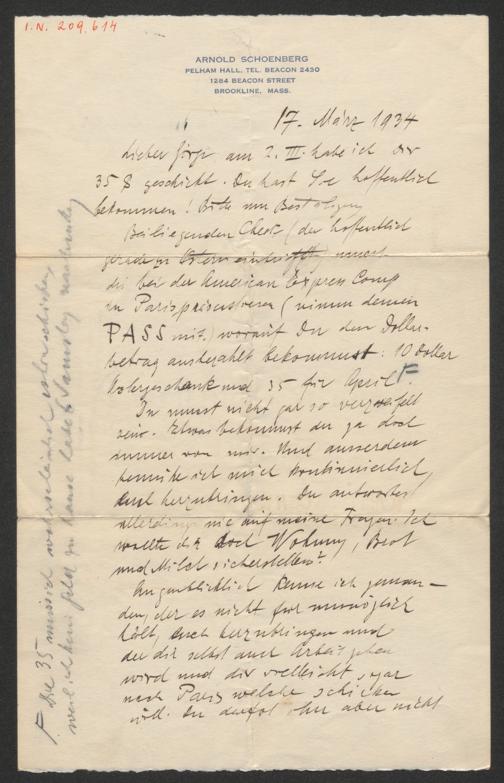 I.N. 209.614
ARNOLD SCHOENBERG
PELHAM HALL, TEL. BEACON 2430
1284 BEACON STREET
BROOKLINE, MASS.
17. März 1934
Lieber Görgi, am 2. III. habe ich dir
35 $ geschickt. Du hast sie hoffentlich
bekommen! Bitte um Bestätigung
Beiliegenden Check (der hoffentlich
gerade zu Ostern eintrifft) musst
du bei der American Express Comp
in Paris präsentieren (nimm deinen
PASS mit) worauf Du den Dollar-
betrag ausbezahlt bekommst: 10 Dollar
Ostergeschenk und 35 für April F.
Du musst nicht gar so verzweifelt
sein. Etwas bekommst du ja doch
immer von mir. Und ausserdem
bemühe ich mich kontinuierlich,
euch herzubringen. Du antwortest
allerdings nie auf meine Fragen. Ich
wollte dir doch Wohnung, Brot
und Milch sicherstellen?
Augenblicklich kenne ich jeman-
den, der es nicht für unmöglich
hält, euch herzubringen und
der dir selbst auch Arbeit geben
wird und dir vielleicht sogar
nach Paris welche schicken
will. Du darfst ihr aber nicht
F Die 35 muss ich wahrscheinlich
weil ich kein Geld zu Hause habe &